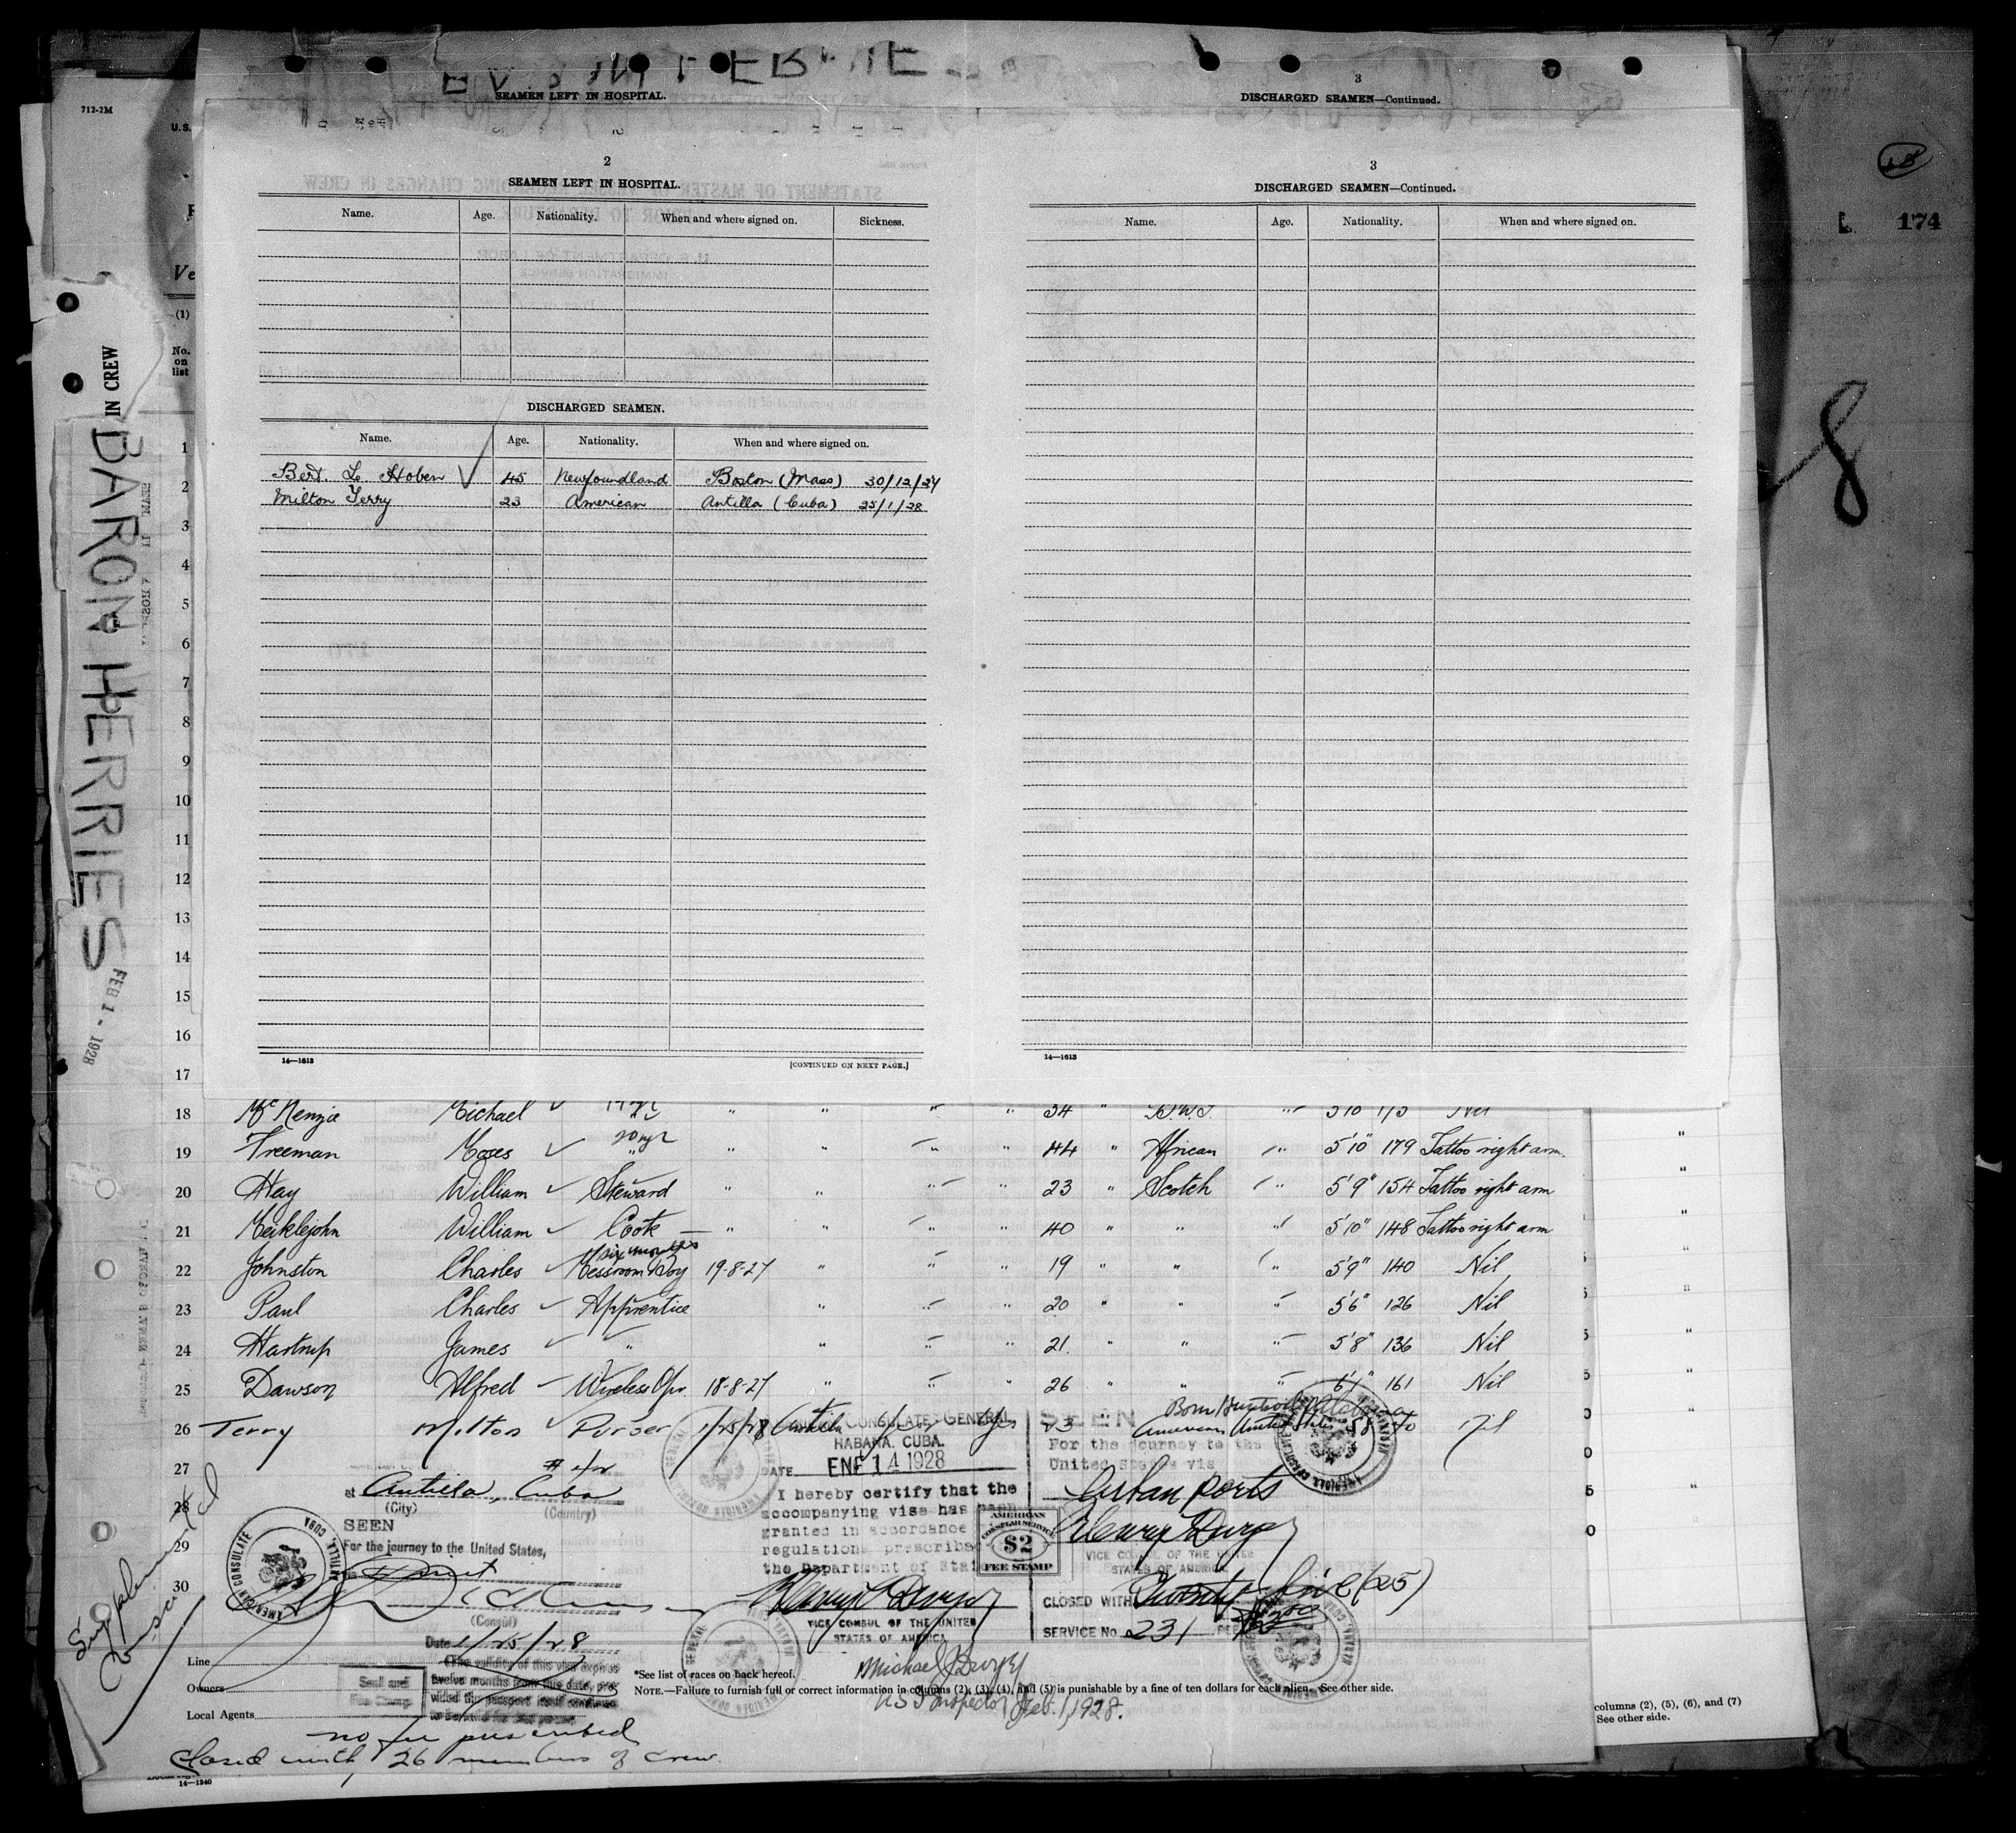 SEAMEN LEFT IN HOSPITAL.
3
DISCHARGED SEAMEN—Continued.
712-2M
U.S.
174
2
SEAMEN LEFT IN HOSPITAL.
Name. Age. Nationality. When and where signed on. Sickness.
DISCHARGED SEAMEN.
Name. Age. Nationality. When and where signed on.
Bert. L. Hoben 45 Newfoundland Boston (Mass) 30/12/27
Milton Terry 23 American Antilla (Cuba) 25/1/28
14—1613
[CONTINUED ON NEXT PAGE.]
3
DISCHARGED SEAMEN—Continued.
Name. Age. Nationality. When and where signed on.
14—1613
8
Ve
(1)
No. on list
IN CREW
BARON HERRIES
FEB 1 - 1928
1
2
3
4
5
6
7
8
9
10
11
12
13
14
15
16
17
18 McKenzie Michael " " " " 34 " B.W.I. " 5'10 175 Nil
19 Freeman Moses 20 yrs " " " " " 44 " African " 5'10" 179 Tattoo right arm.
20 Hay William Steward " " " " 23 " Scotch " 5'9" 154 Tattoo right arm
21 Meiklejohn William Cook " " " " 40 " " " 5'10" 148 Tattoo right arm
six months
22 Johnston Charles Messroom Boy 19-8-27 " " " 19 " " " 5'9" 140 Nil
23 Paul Charles Apprentice " " " 20 " " " 5'6" 126 Nil
24 Hartrup James " " " " 21. " " " 5'8" 136 Nil
25 Dawson Alfred Wireless Opr. 18-8-27 " " " 26 " " " 6'1" 161 Nil
26 Terry Milton Purser 1/25/28 Antilla yes 23 American United States 5'8 Nil
27
28
29
30
CONSULATE GENERAL
HABANA, CUBA.
DATE ENE 14 1928
I hereby certify that the
accompanying visa has been
granted in accordance
regulations prescribed
the Department of State
Henry Durgy
VICE CONSUL OF THE UNITED
STATES OF AMERICA
AMERICAN
CONSULAR SERVICE
$2
FEE STAMP
SEEN
For the journey to the
United States via
Cuban ports
VICE CONSUL OF THE UNITED
STATES OF AMERICA.
CLOSED WITH Twenty five (25)
SERVICE No. 231
at Antilla, Cuba
(City) (Country)
SEEN
For the journey to the United States,
(Consul)
Date 1/25/28
(The validity of this visa expires
twelve months from this date, pro-
vided the passport itself continues
to be valid for that period
Seal and
Fee Stamp
AMERICAN CONSULATE
ANTILLA, CUBA
Supplemental
Line
Owners
Local Agents
*See list of races on back hereof.
NOTE.—Failure to furnish full or correct information in columns (2), (3), (4), and (5) is punishable by a fine of ten dollars for each alien. See other side.
US Inspector Feb. 1, 1928.
no fee prescribed
Closed with 26 members of crew.
14—1240
columns (2), (5), (6), and (7)
See other side.